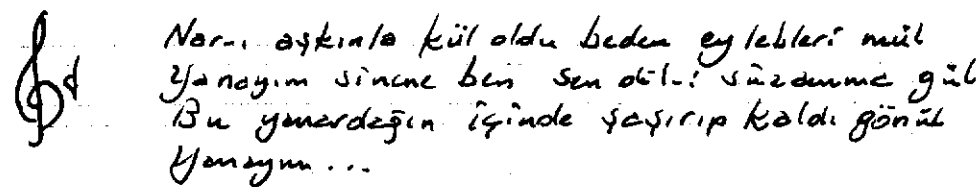 Nar-ı aşkınla kül oldu beden ey lebleri mül
Yanayım sinene ben sen dil-i sûzanıma gül
Bu yanardağın içinde şaşırıp kaldı gönül
Yanayım...